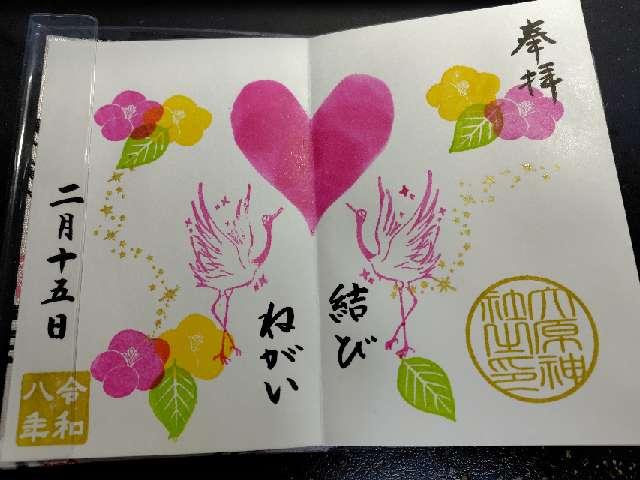 奉拝
結び
ねがい
二月十五日
令和
八年
六原神
社之印